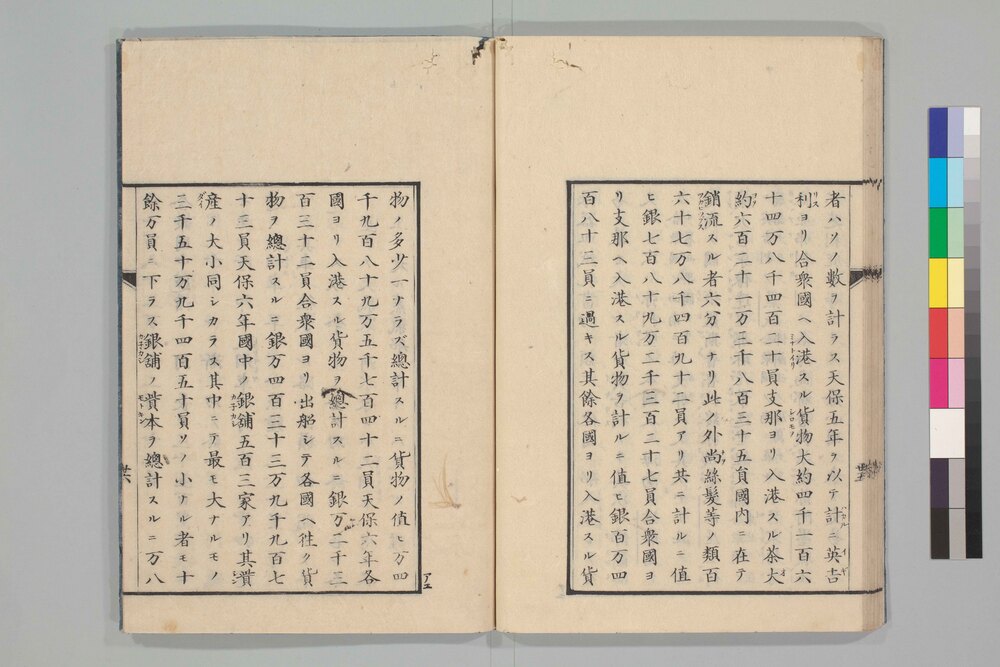 者ハソノ數ヲ計ラス天保五年ヲ以テ計ニ英吉
利ヨリ合衆國ヘ入港スル貨物大約四千一百六
十四万八千四百二十員支那ヨリ入港スル茶大
約六百二十一万三千八百三十五員國内ニ在テ
銷流スル者六分一ナリ此ノ外尚絲髮等ノ類百
六十七万八千四百九十二員アリ共ニ計ルニ值
ヒ銀七百八十九万二千三百二十七員合衆國ヨ
リ支那ヘ入港スル貨物ヲ計ルニ值ヒ銀百万四
百八十三員ニ過キス其餘各國ヨリ入港スル貨
物ノ多少一ナラズ總計スルニ貨物ノ值ヒ万四
千九百八十九万五千七百四十二員天保六年各
國ヨリ入港スル貨物ヲ總計スルニ銀万二千三
百三十二員合衆國ヨリ出船シテ各國ヘ往ク貨
物ヲ總計スルニ銀万四百三十三万九千九百七
十三員天保六年國中ノ銀舖五百三家アリ其資
産ノ大小同シカラス其中ニテ最モ大ナルモノ
三千五十万九千四百五十員ソノ小ナル者モ十
餘万員ニ下ラス銀舖ノ資本ヲ總計スルニ二万八